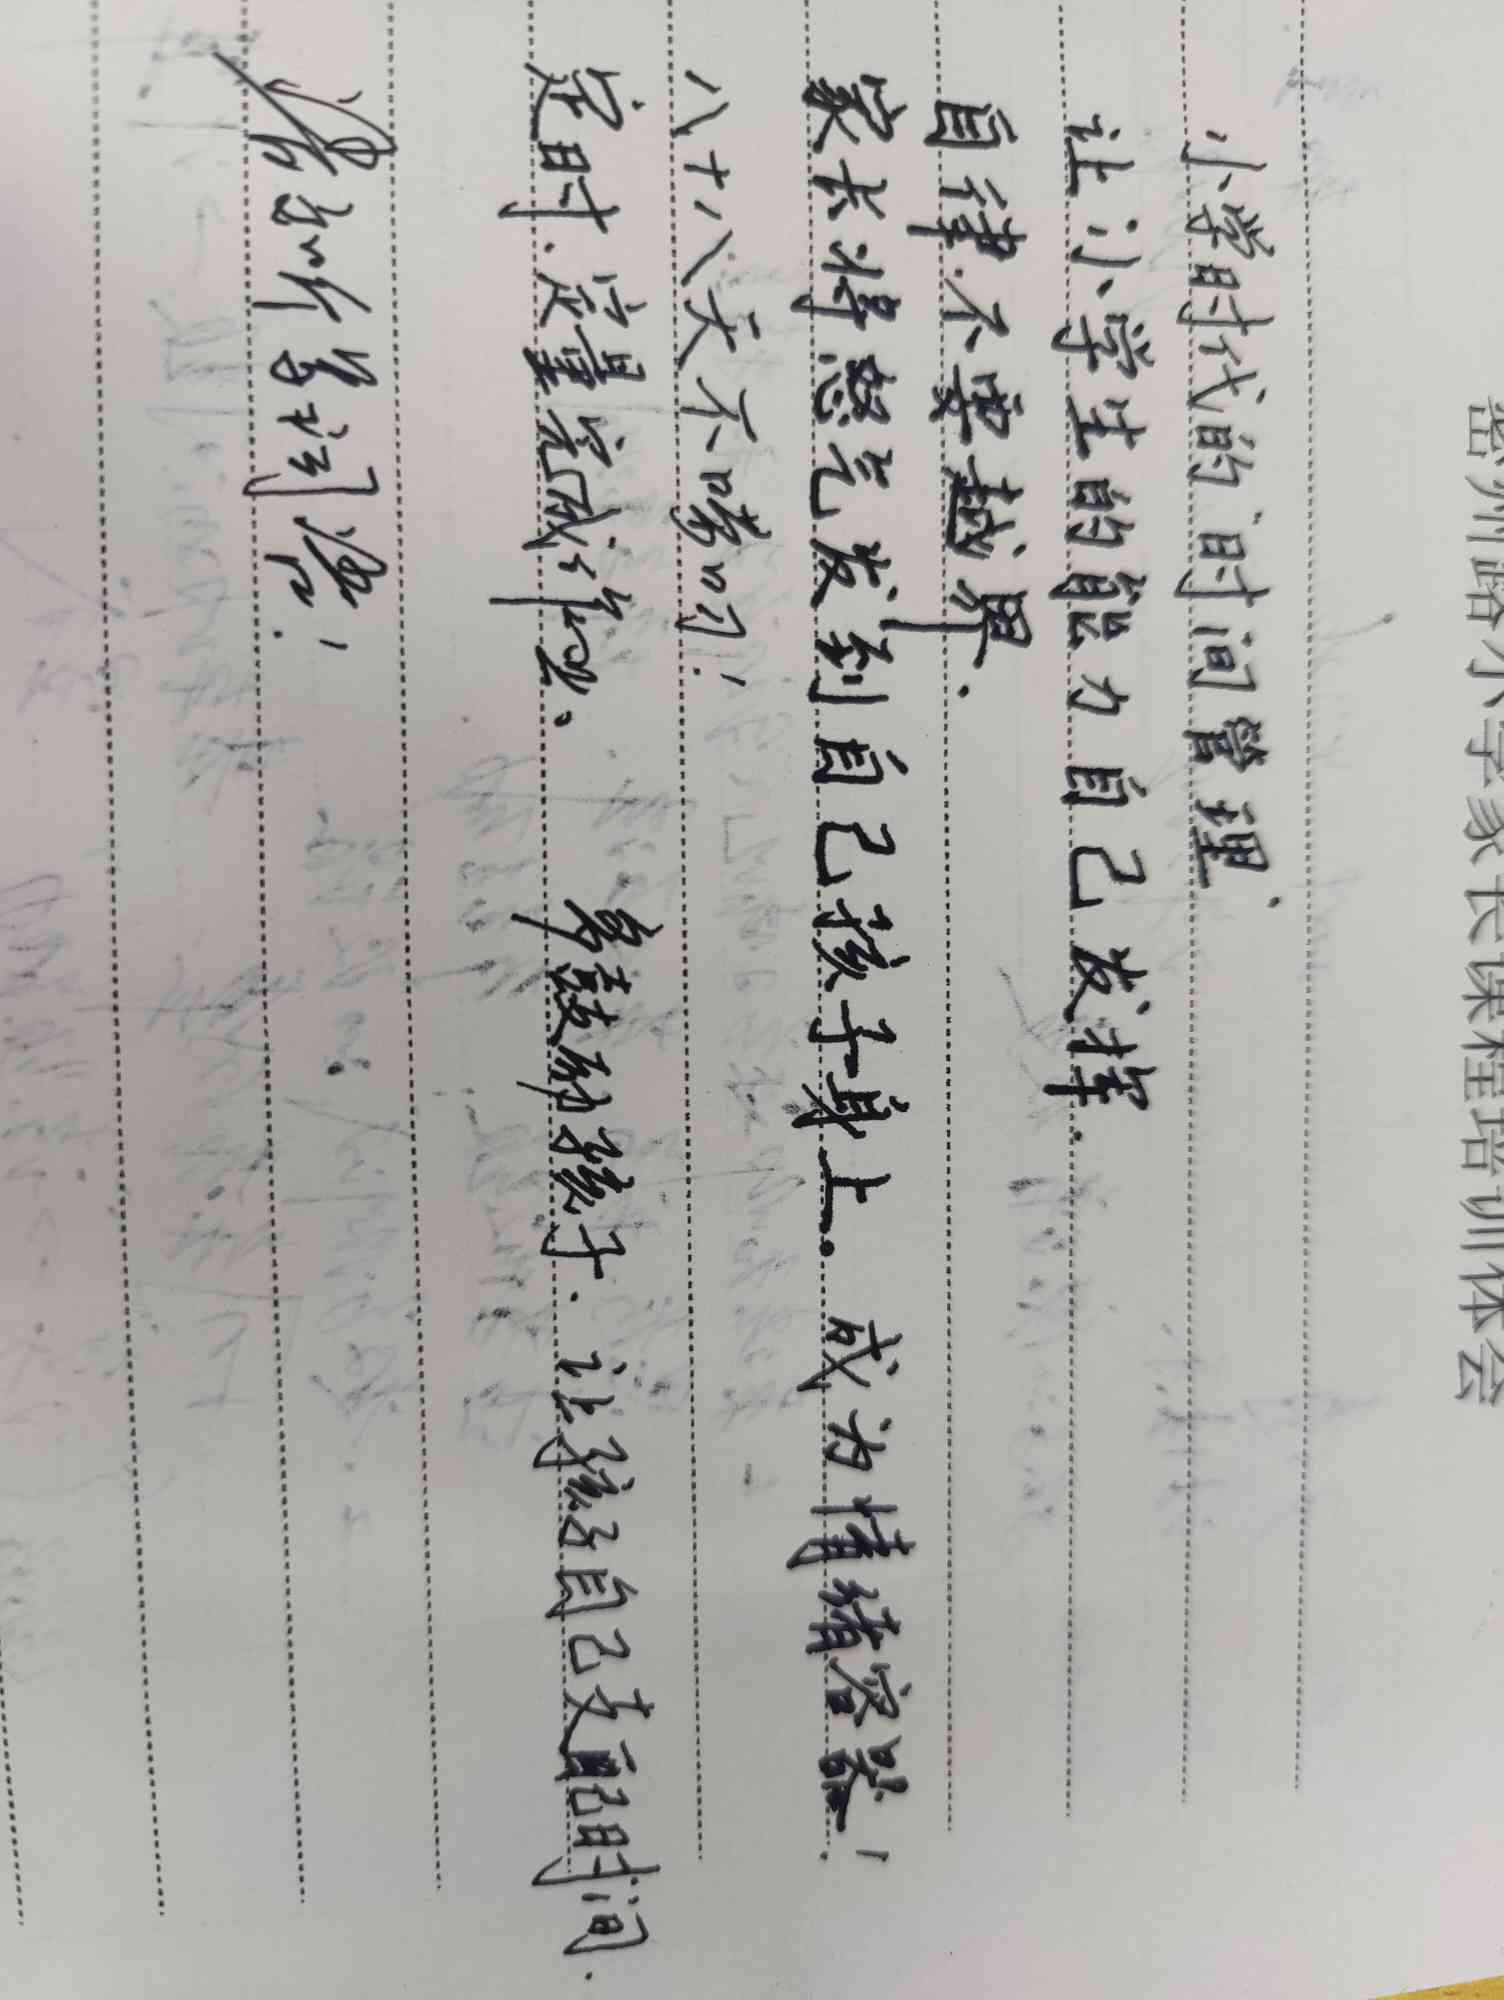 密州路小学家长课程培训体会
小学时代的时间管理.
让小学生的能力自己发挥.
自律.不要越界.
家长将怒气发到自己孩子身上。成为情绪容器!
八十八天不唠叨!
定时.定量完成作业。 多鼓励孩子.让孩子自己支配时间.